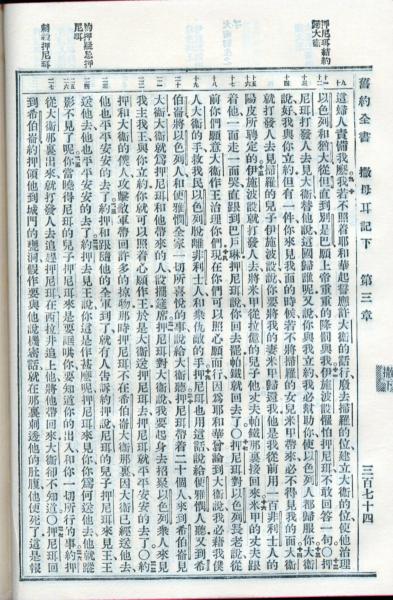 舊約全書 撒母耳記下 第三章 三百七十四
撒下
押尼珥結約
歸大衛
約押疑忌押
尼珥
刺殺押尼珥
這婦人責備我麼我若不照着耶和華起誓應許大衛的話行廢去掃羅的位建立大衛的位使他治理
以色列和猶大從但直到別是巴願上帝重重的降罰與我伊施波設懼怕押尼珥不敢回答一句〇押
尼珥打發人去見大衛替他說這國歸誰呢又說你與我立約我必幫助你使以色列人都歸服你大衛
說好我與你立約但有一件你來見我面的時候若不將掃羅的女兒米甲帶來必不得見我的面大衛
就打發人去見掃羅的兒子伊施波設說你要將我的妻米甲歸還我他是我從前用一百非利士人的
陽皮所聘定的伊施波設就打發人去將米甲從拉億的兒子他丈夫帕鐵那裏接回來米甲的丈夫跟
着他一面走一面哭直跟到巴戶琳押尼珥說你回去罷帕鐵就回去了〇押尼珥對以色列長老說從
前你們願意大衛作王治理你們現在你們可以照心願而行因爲耶和華曾論到大衛說我必藉我僕
人大衛的手救我民以色列脫離非利士人和衆仇敵的手押尼珥也用這話說給便雅憫人聽又到希
伯崙將以色列人和便雅憫全家一切所喜悅的事說給大衛聽押尼珥帶着二十個人來到希伯崙見
大衛大衛就爲押尼珥和他帶來的人設擺筵席押尼珥對大衛說我要起身去招聚以色列衆人來見
我主我王與你立約你就可以照着心願作王於是大衛送押尼珥去押尼珥就平平安安的去了〇約
押和大衛的僕人攻擊敵軍帶回許多的擄物那時押尼珥不在希伯崙大衛那裏因大衛已經送他去
他也平平安安的去了約押和跟隨他的全軍到了就有人告訴約押說尼珥的兒子押尼珥來見王王
送他去他也平平安安的去了約押去見王說你這是作甚麼呢押尼珥來見你你爲何送他去他就蹤
影不見了呢你當曉得尼珥的兒子押尼珥來是要誆哄你要知道你的出入和你一切所行的事約押
從大衛那裏出來就打發人去追趕押尼珥在西拉井追上他將他帶回來大衛卻不知道〇押尼珥回
到希伯崙約押領他到城門的甕洞假作要與他說機密話就在那裏刺透他的肚腹他便死了這是報